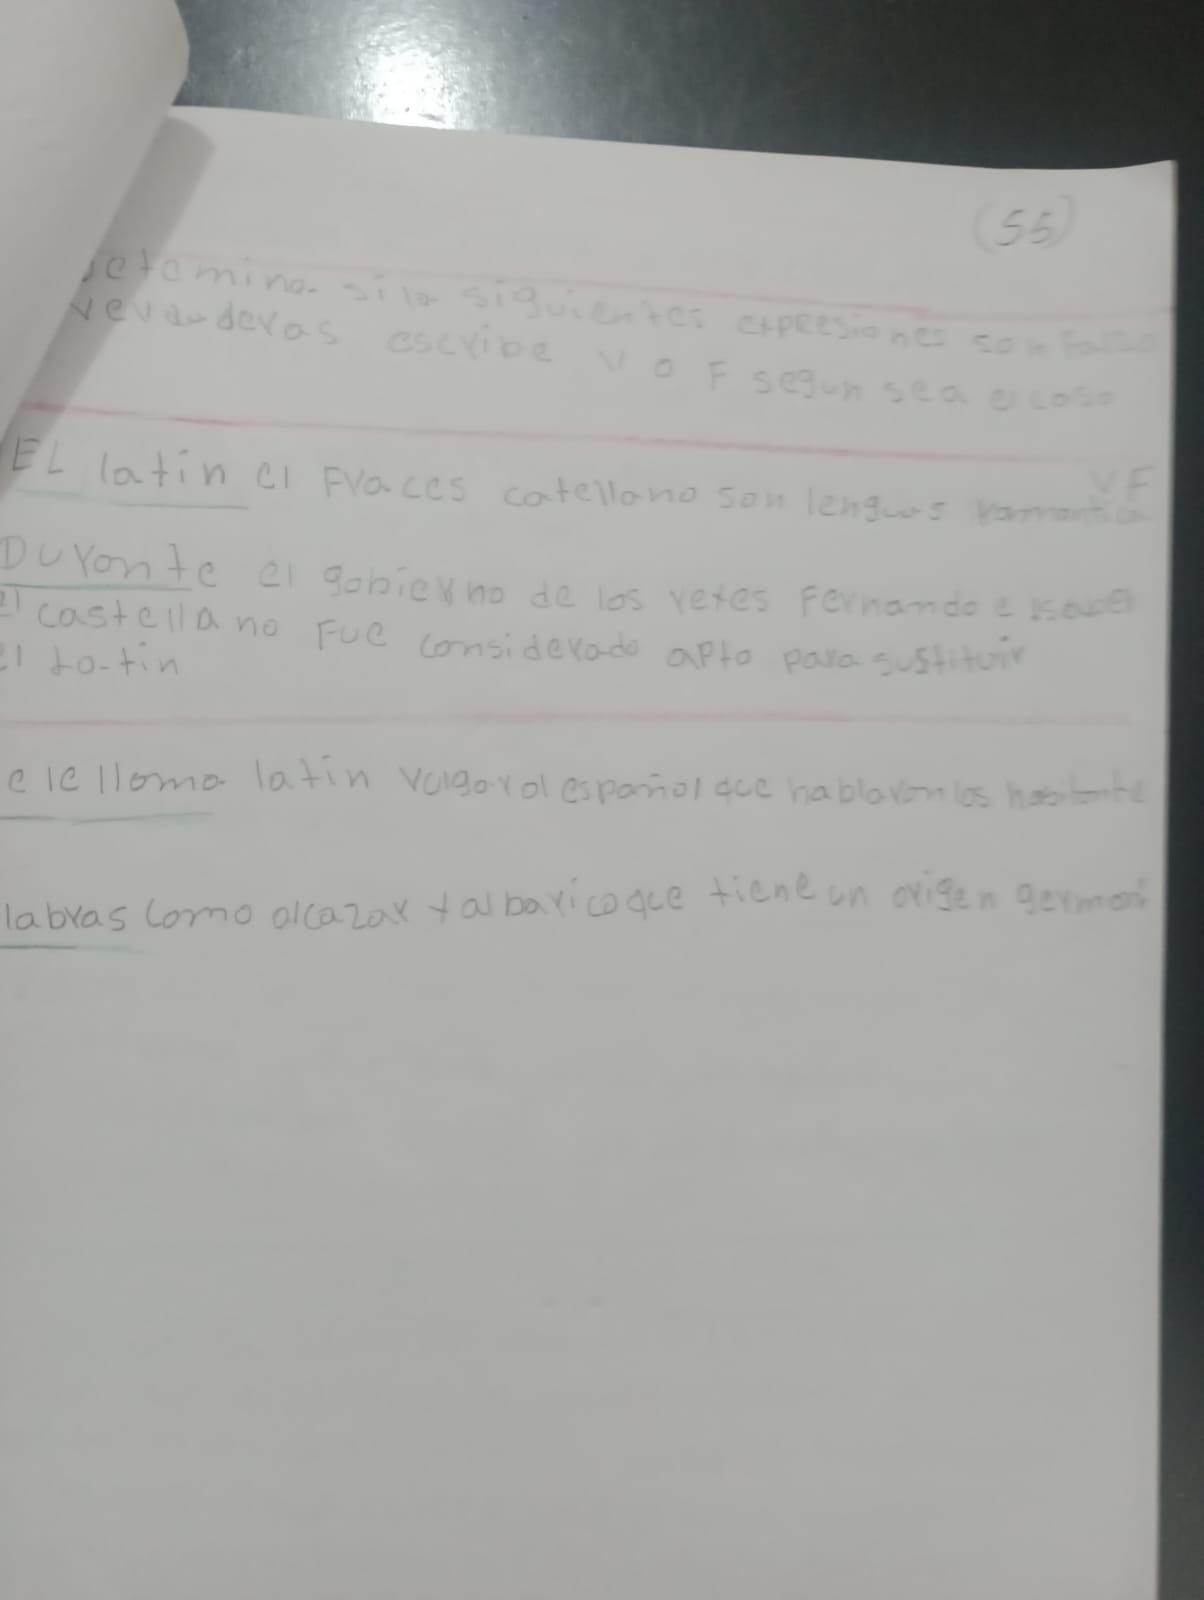 (55)
determina si la siguientes expresiones son falso
vevauderas escribe V O F segun sea el caso
V F
EL latin el Fvaces catellano son lenguas
Duvante el gobievno de los reyes Fernando e Isabel
el castellano Fue considevado apto para sustituir
el latin
e le llama latin vulgar al español que hablavon los habitante
labras como alcazar y albavicoque tiene un origen germani